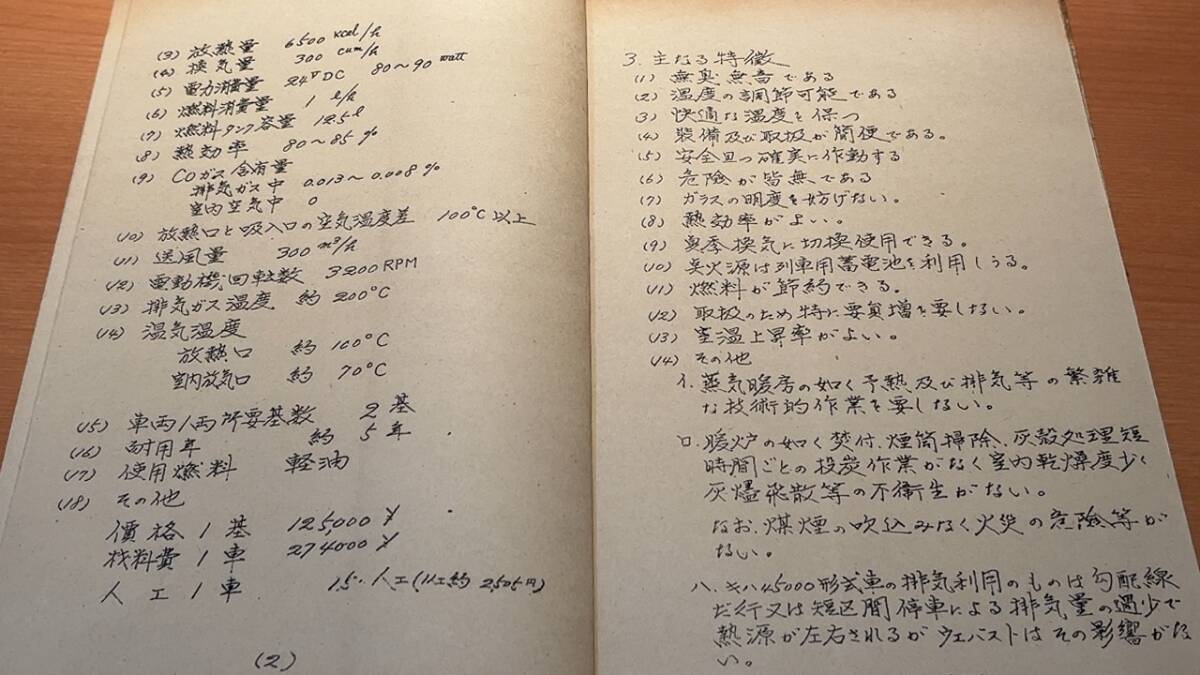 (3) 放熱量 6500 Kcal/h
(4) 換気量 300 cum/h
(5) 電力消費量 24V DC 80～90 watt
(6) 燃料消費量 1 l/h
(7) 燃料タンク容量 125l
(8) 熱効率 80～85 %
(9) COガス含有量
排気ガス中 0.013～0.008 %
室内空気中 0
(10) 放熱口と吸入口の空気温度差 100°C 以上
(11) 送風量 300 m³/h
(12) 電動機回転数 3200 RPM
(13) 排気ガス温度 約 200°C
(14) 温気温度
放熱口 約 100°C
室内放気口 約 70°C
(15) 車両1両所要基数 2 基
(16) 耐用年 約 5 年
(17) 使用燃料 軽油
(18) その他
價格 1 基 125000 ¥
材料費 1 車 274000 ¥
人工 1 車 15.人工(1人工約 2505円)
(2)
3. 主なる特徴
(1) 無臭無音である
(2) 温度の調節可能である
(3) 快適な温度を保つ
(4) 装備及び取扱が簡便である。
(5) 安全且つ確実に作動する
(6) 危険が皆無である
(7) ガラスの明度を妨げない。
(8) 熱効率がよい。
(9) 夏季換気に切換使用できる。
(10) 点火源は列車用蓄電池を利用しうる。
(11) 燃料が節約できる。
(12) 取扱のため特に要員増を要しない。
(13) 室温上昇率がよい。
(14) その他
イ. 蒸気暖房の如く予熱及び排気等の繁雑
な技術的作業を要しない。
ロ. 暖炉の如く焚付、煙筒掃除、灰殻処理短
時間ごとの投炭作業がなく室内乾燥度少く
灰燼飛散等の不衛生がない。
なお、煤煙の吹込みなく火災の危険等が
ない。
ハ. キハ45000形式車の排気利用のものは勾配線
だ行又は短区間停車による排気量の過少で
熱源が左右されるがウエバストはその影響がな
い。